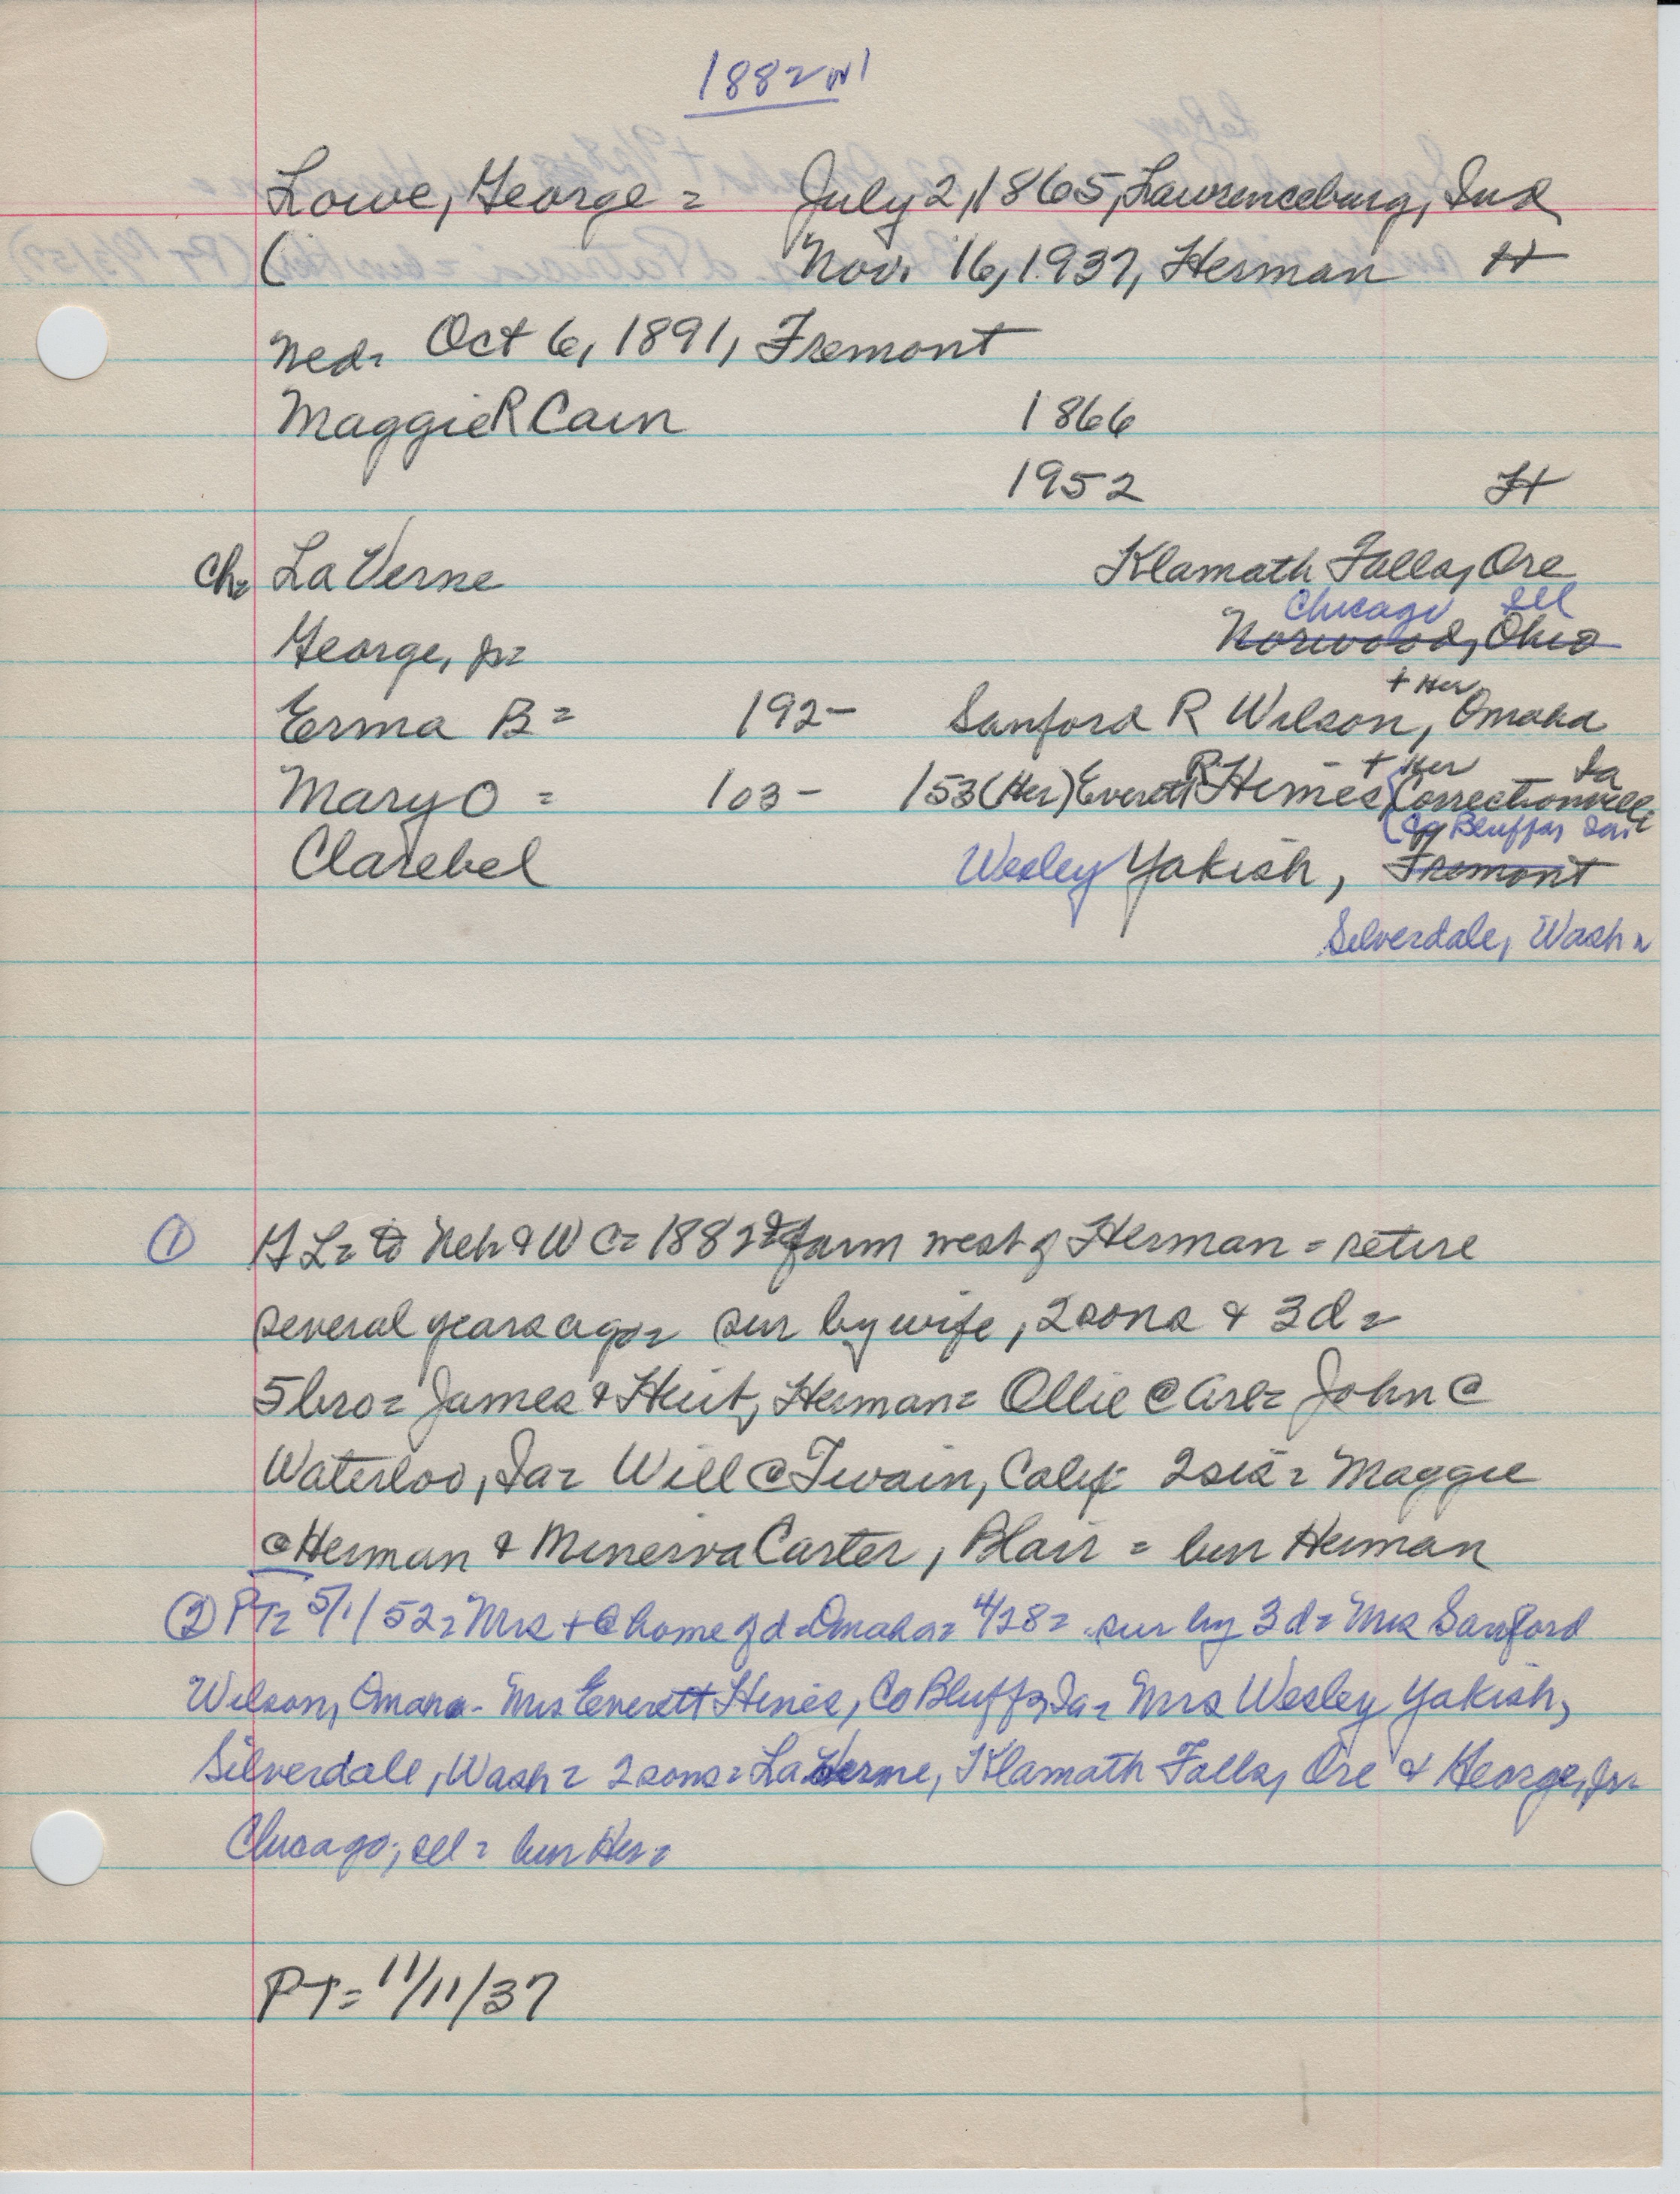 1882
Lowe, George = July 2, 1865, Lawrenceburg, Ind
( Nov. 16, 1937, Herman H
Med= Oct 6, 1891, Fremont
Maggie R Cain 1866
1952 H
Ch= LaVerne Klamath Falls, Ore
Chicago Ill
George, Jr= Norwood, Ohio
+ Her
Erma B= 192- Sanford R Wilson, Omaha
- + Her Ia
Mary O = 103- 153 (Her) Everett R Himes (Correctionville
(Co Bluffs, Ia.
Clarebel Wesley Yakish, Fremont
Silverdale, Wash=
① G L= to Neb & W C= 1882= farm west of Herman = retire
several years ago= sur by wife, 2 sons & 3 d=
5 bro= James & Hiit, Herman= Ollie @ Arl= John @
Waterloo, Ia= Will @ Twain, Calif 2 sis= Maggie
@ Herman & Minerva Carter, Blair = bur Herman
② PT= 5/1/52= Mrs + @ home of d=Omaha= 4/28= sur by 3 d= Mrs Sanford
Wilson, Omaha- Mrs Everett Himes, Co Bluffs, Ia= Mrs Wesley Yakish,
Silverdale, Wash= 2 sons= LaVerne, Klamath Falls, Ore & George, Jr=
Chicago, Ill= bur Her=
PT= 11/11/37